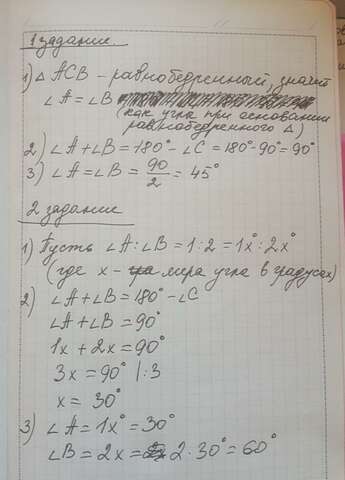 1 задание.
1) △ ACB - равнобедренный, значит
∠A = ∠B
(как угла при основании
равнобедренного △)
2) ∠A + ∠B = 180° - ∠C = 180° - 90° = 90°
3) ∠A = ∠B = 90/2 = 45°
2 задание
1) Пусть ∠A : ∠B = 1 : 2 = 1x° : 2x°
(где x - мера угла в градусах)
2) ∠A + ∠B = 180° - ∠C
∠A + ∠B = 90°
1x + 2x = 90°
3x = 90° |:3
x = 30°
3) ∠A = 1x° = 30°
∠B = 2x = 2 · 30° = 60°